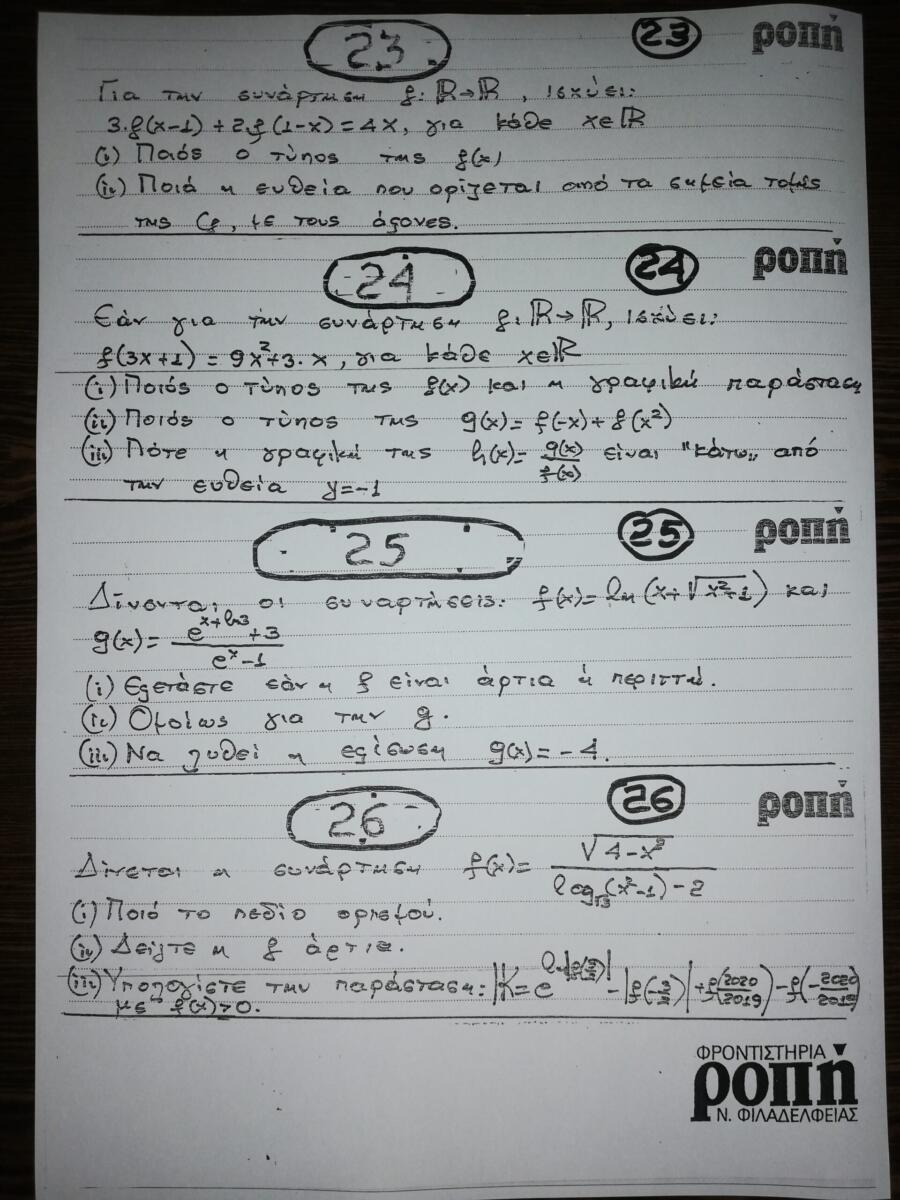 23 23 ροπή
Για την συνάρτηση f: ℝ→ℝ, ισχύει:
3·f(x-1)+2·f(1-x)=4x, για κάθε x∈ℝ
(i) Ποιός ο τύπος της f(x)
(ii) Ποιά η ευθεία που ορίζεται από τα σημεία τομής
της Cf, με τους άξονες.
24 24 ροπή
Εάν για την συνάρτηση f: ℝ→ℝ, ισχύει:
f(3x+1) = 9x²+3·x, για κάθε x∈ℝ
(i) Ποιός ο τύπος της f(x) και η γραφική παράσταση
(ii) Ποιός ο τύπος της g(x)=f(-x)+f(x²)
(iii) Πότε η γραφική της h(x)=g(x)/f(x) είναι "κάτω" από
την ευθεία y=-1
25 25 ροπή
Δίνονται οι συναρτήσεις: f(x)=ln(x+√(x²+1)) και
g(x)=(e^(x+ln3)+3)/(e^x-1)
(i) Εξετάστε εάν η f είναι άρτια ή περιττή.
(ii) Ομοίως για την g.
(iii) Να λυθεί η εξίσωση g(x)=-4.
26 26 ροπή
Δίνεται η συνάρτηση f(x)=√(4-x²)/(log√3(x²-1)-2)
(i) Ποιό το πεδίο ορισμού.
(ii) Δείξτε η f άρτια.
(iii) Υπολογίστε την παράσταση: K=e^(ln|f(3/2)|)-|f(-3/2)|+f(2020/2019)-f(-2020/2019)
με f(x)>0.
ΦΡΟΝΤΙΣΤΗΡΙΑ
ροπή
Ν. ΦΙΛΑΔΕΛΦΕΙΑΣ